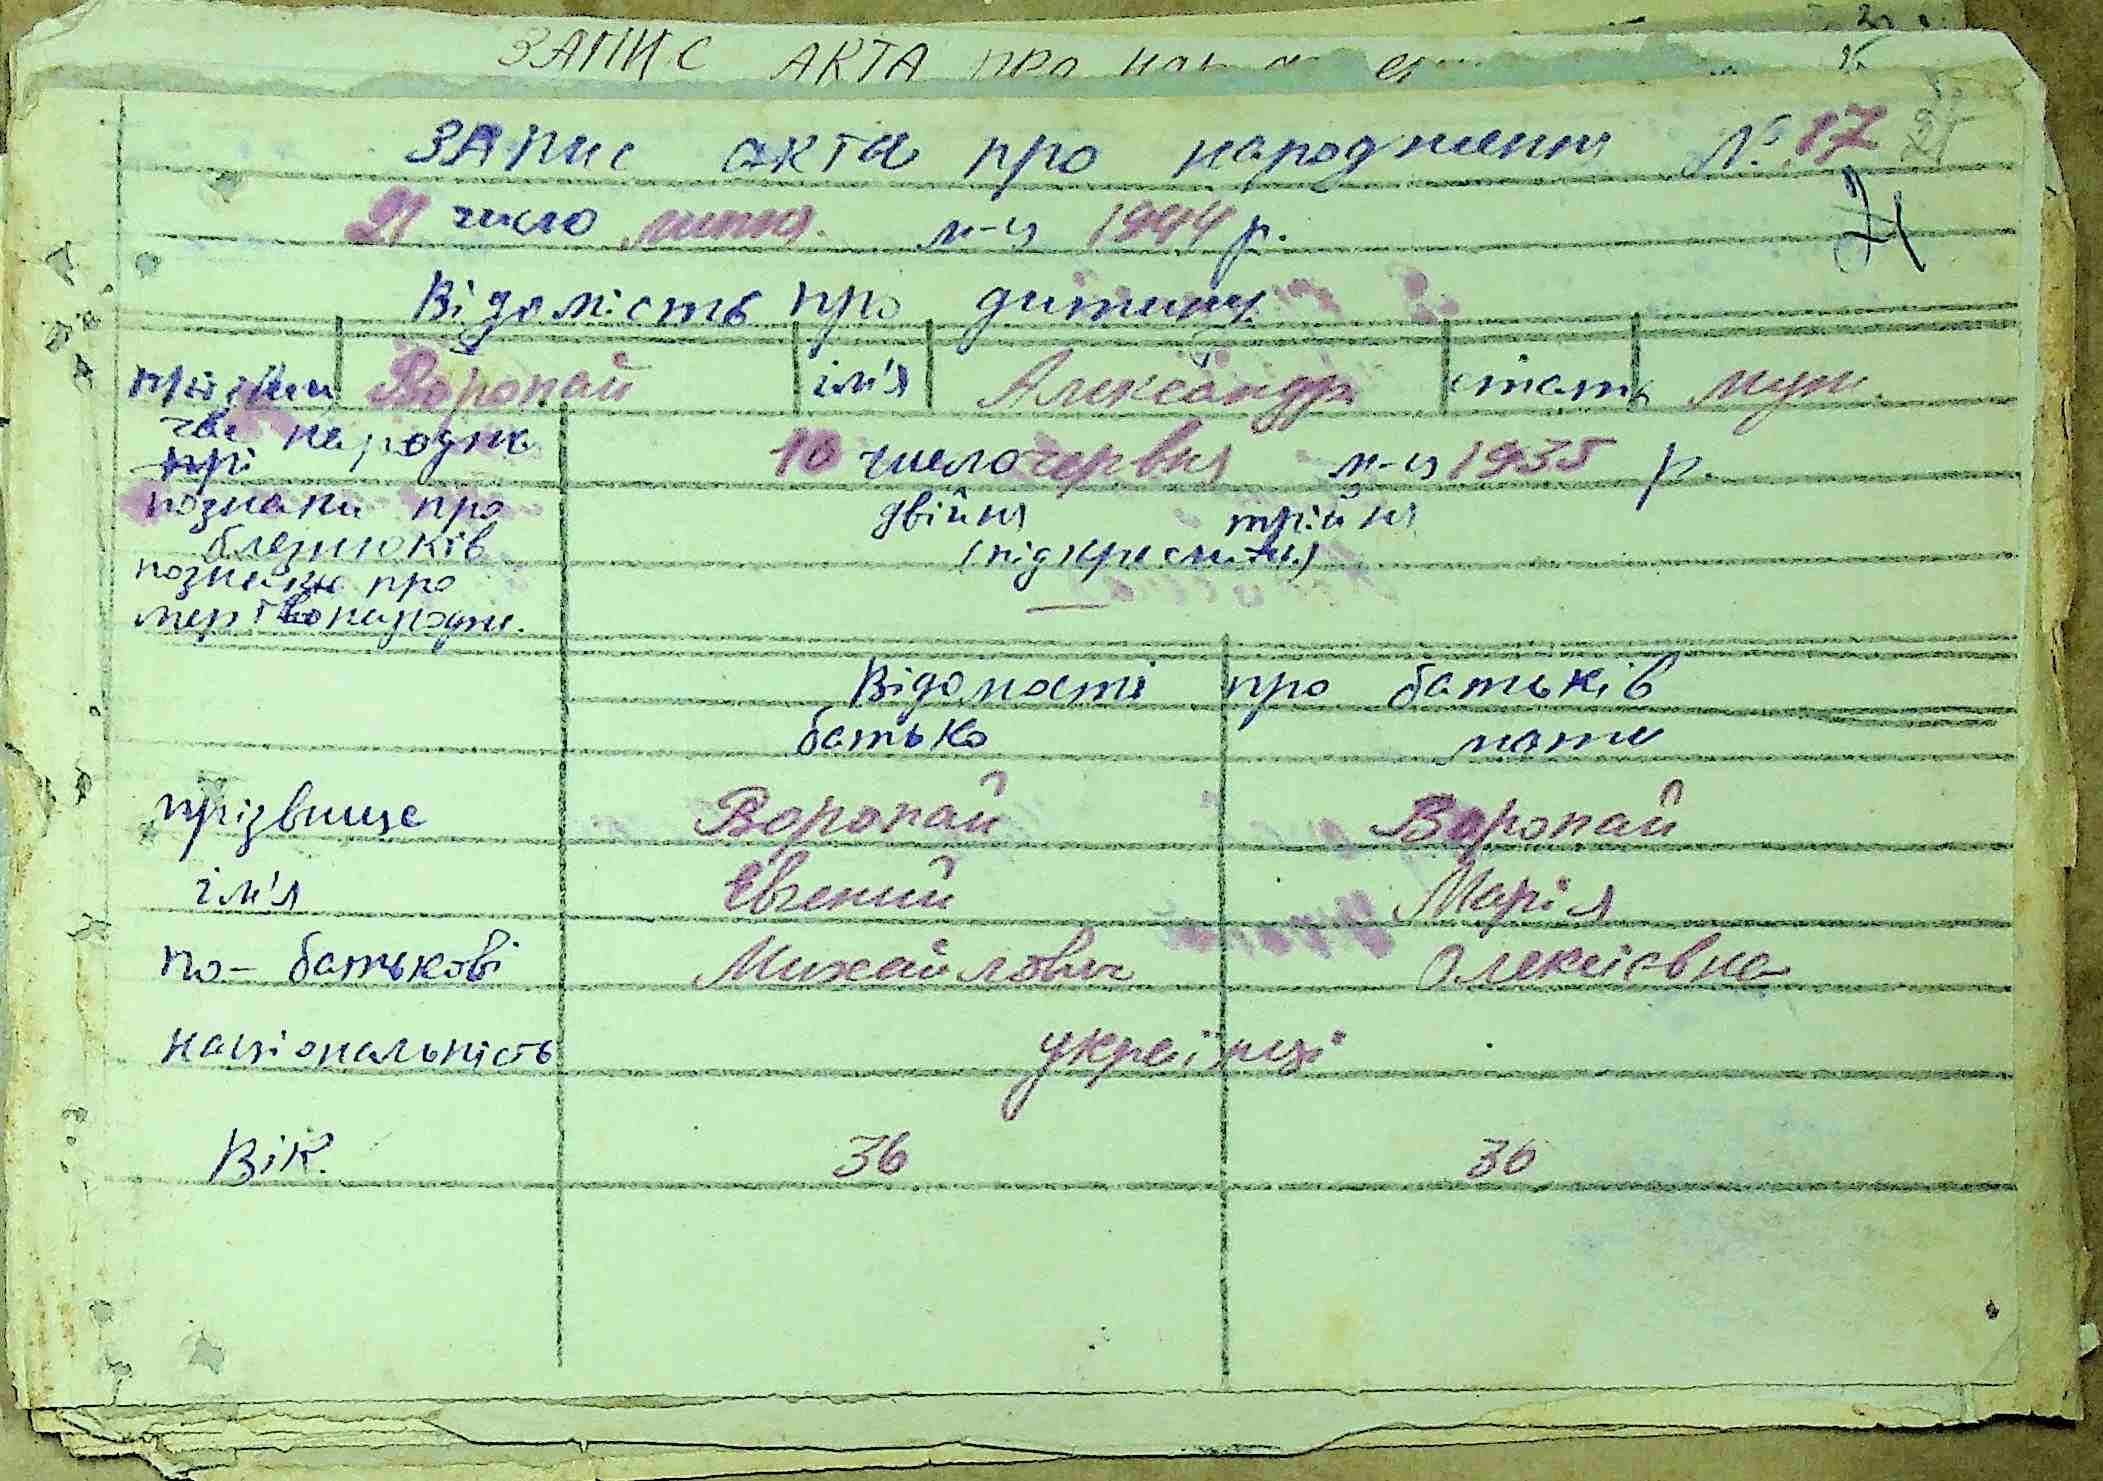 ЗАПИС АКТА про
Запис акта про народження № 17
21 число липня м-ця 1944 р.
21
Відомість про дитину
Воропай ім'я Александр стать муж.
час народж 10 число червня м-ця 1935 р.
познаки про двійня трійня
близнюків (підкреслити)
познаки про
мертвонародж. —
Відомості про батьків
батько мати
прізвище Воропай Воропай
ім'я Євгений Марія
по-батькові Михайлович Олексієвна
національність українці
Вік. 36 36